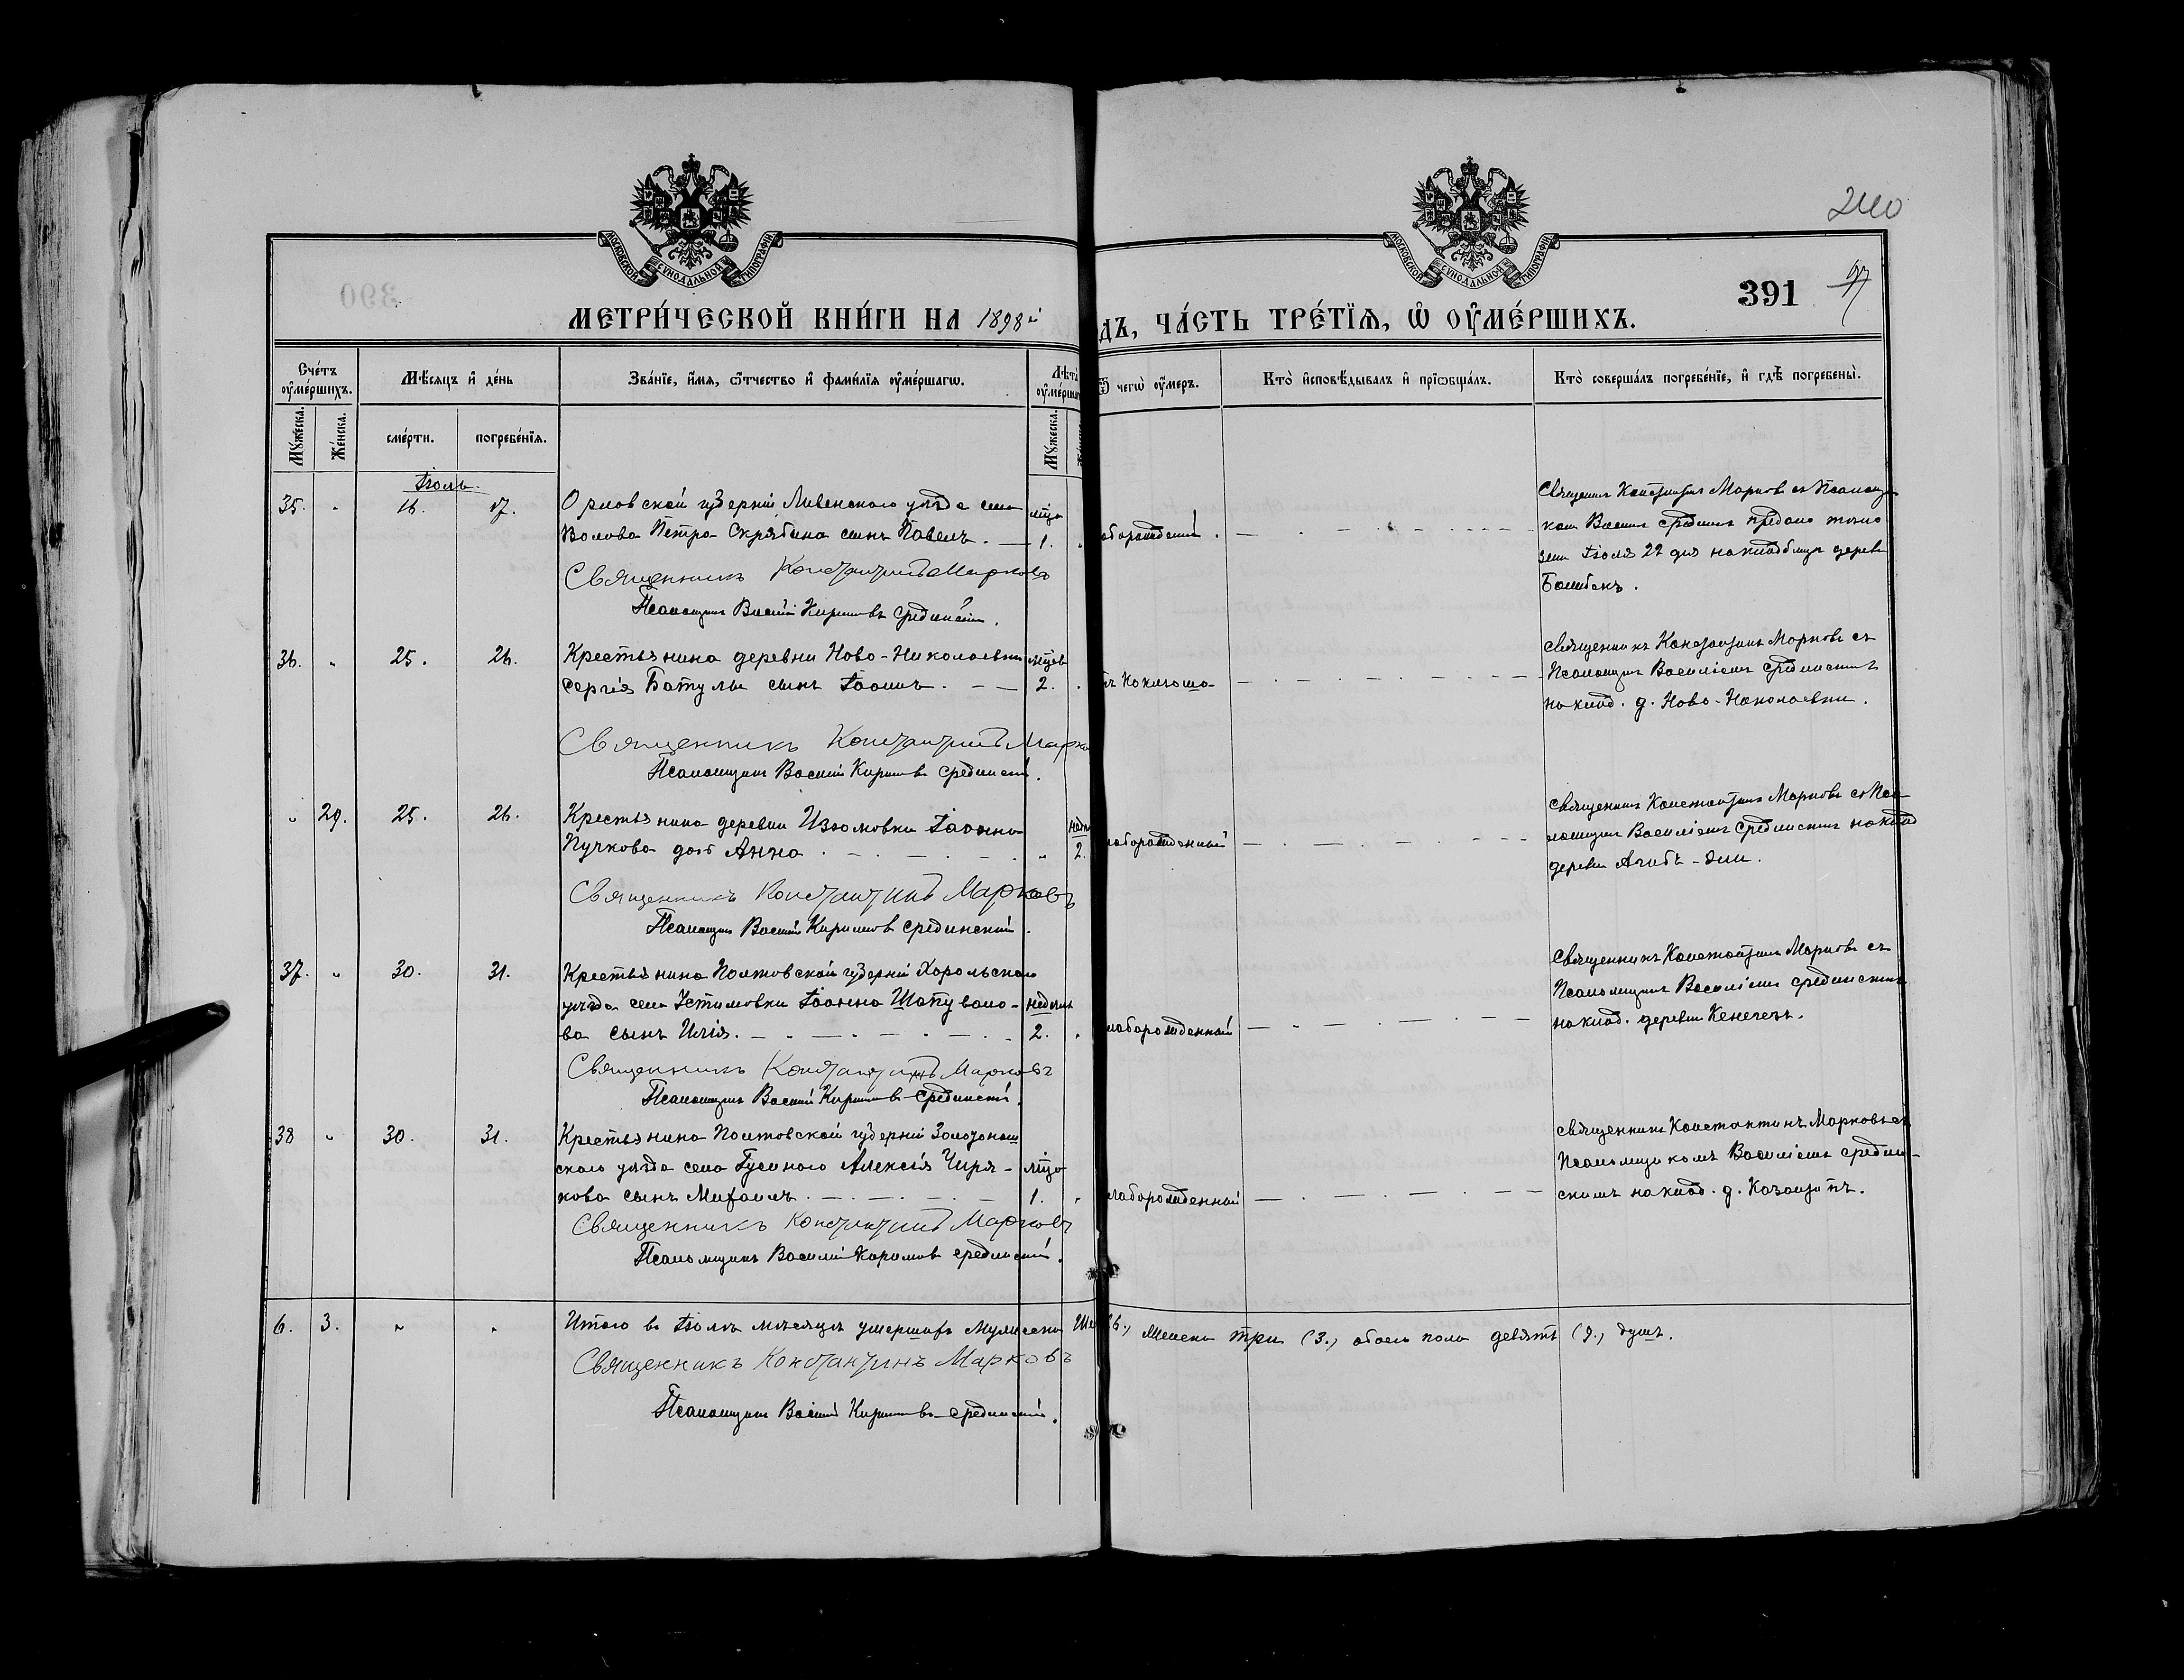 240
МОСКОВСКОЙ СУНОДАЛЬНОЙ ТИПОГРАФІИ
МОСКОВСКОЙ СУНОДАЛЬНОЙ ТИПОГРАФІИ
391
97
МЕТРИ́ЧЕСКОЙ КНИ́ГИ НА 1898й
дъ, ЧА́СТЬ ТРЕ́ТЇѦ, Ѽ ОУ҆МЕ́РШИХЪ.
Сче́тъ оу҆ме́ршихъ.
Мѣ́сяцъ и҆ де́нь
Зва́нїе, и҆́мя, ѻ҆́тчество и҆ фами́лїя оу҆ме́ршагѡ.
Лѣта оу҆мерша
Ѿ чегѡ̀ оу҆́меръ.
Кто̀ и҆сповѣ́дывалъ и҆ прїѡбща́лъ.
Кто̀ соверша́лъ погребе́нїе, и҆ гдѣ̀ погребены̀.
Мꙋ́жеска.
Же́нска.
сме́рти.
погребе́нїя.
Мꙋ́жеска.
Іюль.
35. " 16. 17. Орловской губерніи Ливенскаго уѣзда села
Волова Петра Скрябина сынъ Павелъ. — мѣся 1. "
Священникъ Константинъ Марковъ
Псаломщикъ Василій Кириловъ Срединскій.
аборожденный.
Священникъ Константинъ Марковъ съ Псаломщи-
комъ Василіемъ Средин предано тѣло
земли Іюля 22 дня на кладбищѣ дерев
36. " 25. 26. Крестьянина деревни Ново-Николаевки
Сергія Батулы сынъ Іоаннъ. — — 2. "
Священникъ Константинъ Марко
Псаломщикъ Василій Кириловъ Срединскій.
тъ Коклюша
Священникъ Константинъ Марковъ съ
Псаломщик Василіемъ Срединскимъ
на клад. д. Ново-Николаевки.
" 29. 25. 26. Крестьянина деревни Изюмовки Іоанна
Пучкова дочь Анна. — . — . — " 2.
Священникъ Константинъ Марковъ
Псаломщикъ Василій Кириловъ Срединскій.
лаборожденный
Священникъ Константинъ Марковъ съ Пса-
ломщик Василіемъ Срединскимъ на клад
деревни Агибъ-Эли.
37. " 30. 31. Крестьянина Полтовской губерніи Хорольскаго
уѣзда села Устимовки Іоанна Шаповало-
ва сынъ Илія. — . — . — недѣль 2. "
Священникъ Константинъ Марковъ
Псаломщикъ Василій Кириловъ Срединскій.
лаборожденный
Священникъ Константинъ Марковъ съ
Псаломщик Василіемъ Срединскимъ
на клад. деревни Кенегезъ.
38 " 30. 31. Крестьянина Полтовской губерніи Золотонош
скаго уѣзда села Гусинаго Алексія Чиря-
кова сынъ Михаилъ. — . — . — 1. "
Священникъ Константинъ Марковъ
Псаломщикъ Василій Кириловъ Срединскій.
лаборожденный
Священникъ Константинъ Марковъ съ
Псаломщикомъ Василіемъ Средин-
скимъ на клад. д.
6. 3. " " Итого въ Іюлѣ мѣсяцѣ умершихъ Мужеска Ше 6.) Женска три (3.) обоего пола девять (9.) душъ.
Священникъ Константинъ Марковъ
Псаломщикъ Василій Кириловъ Срединскій.